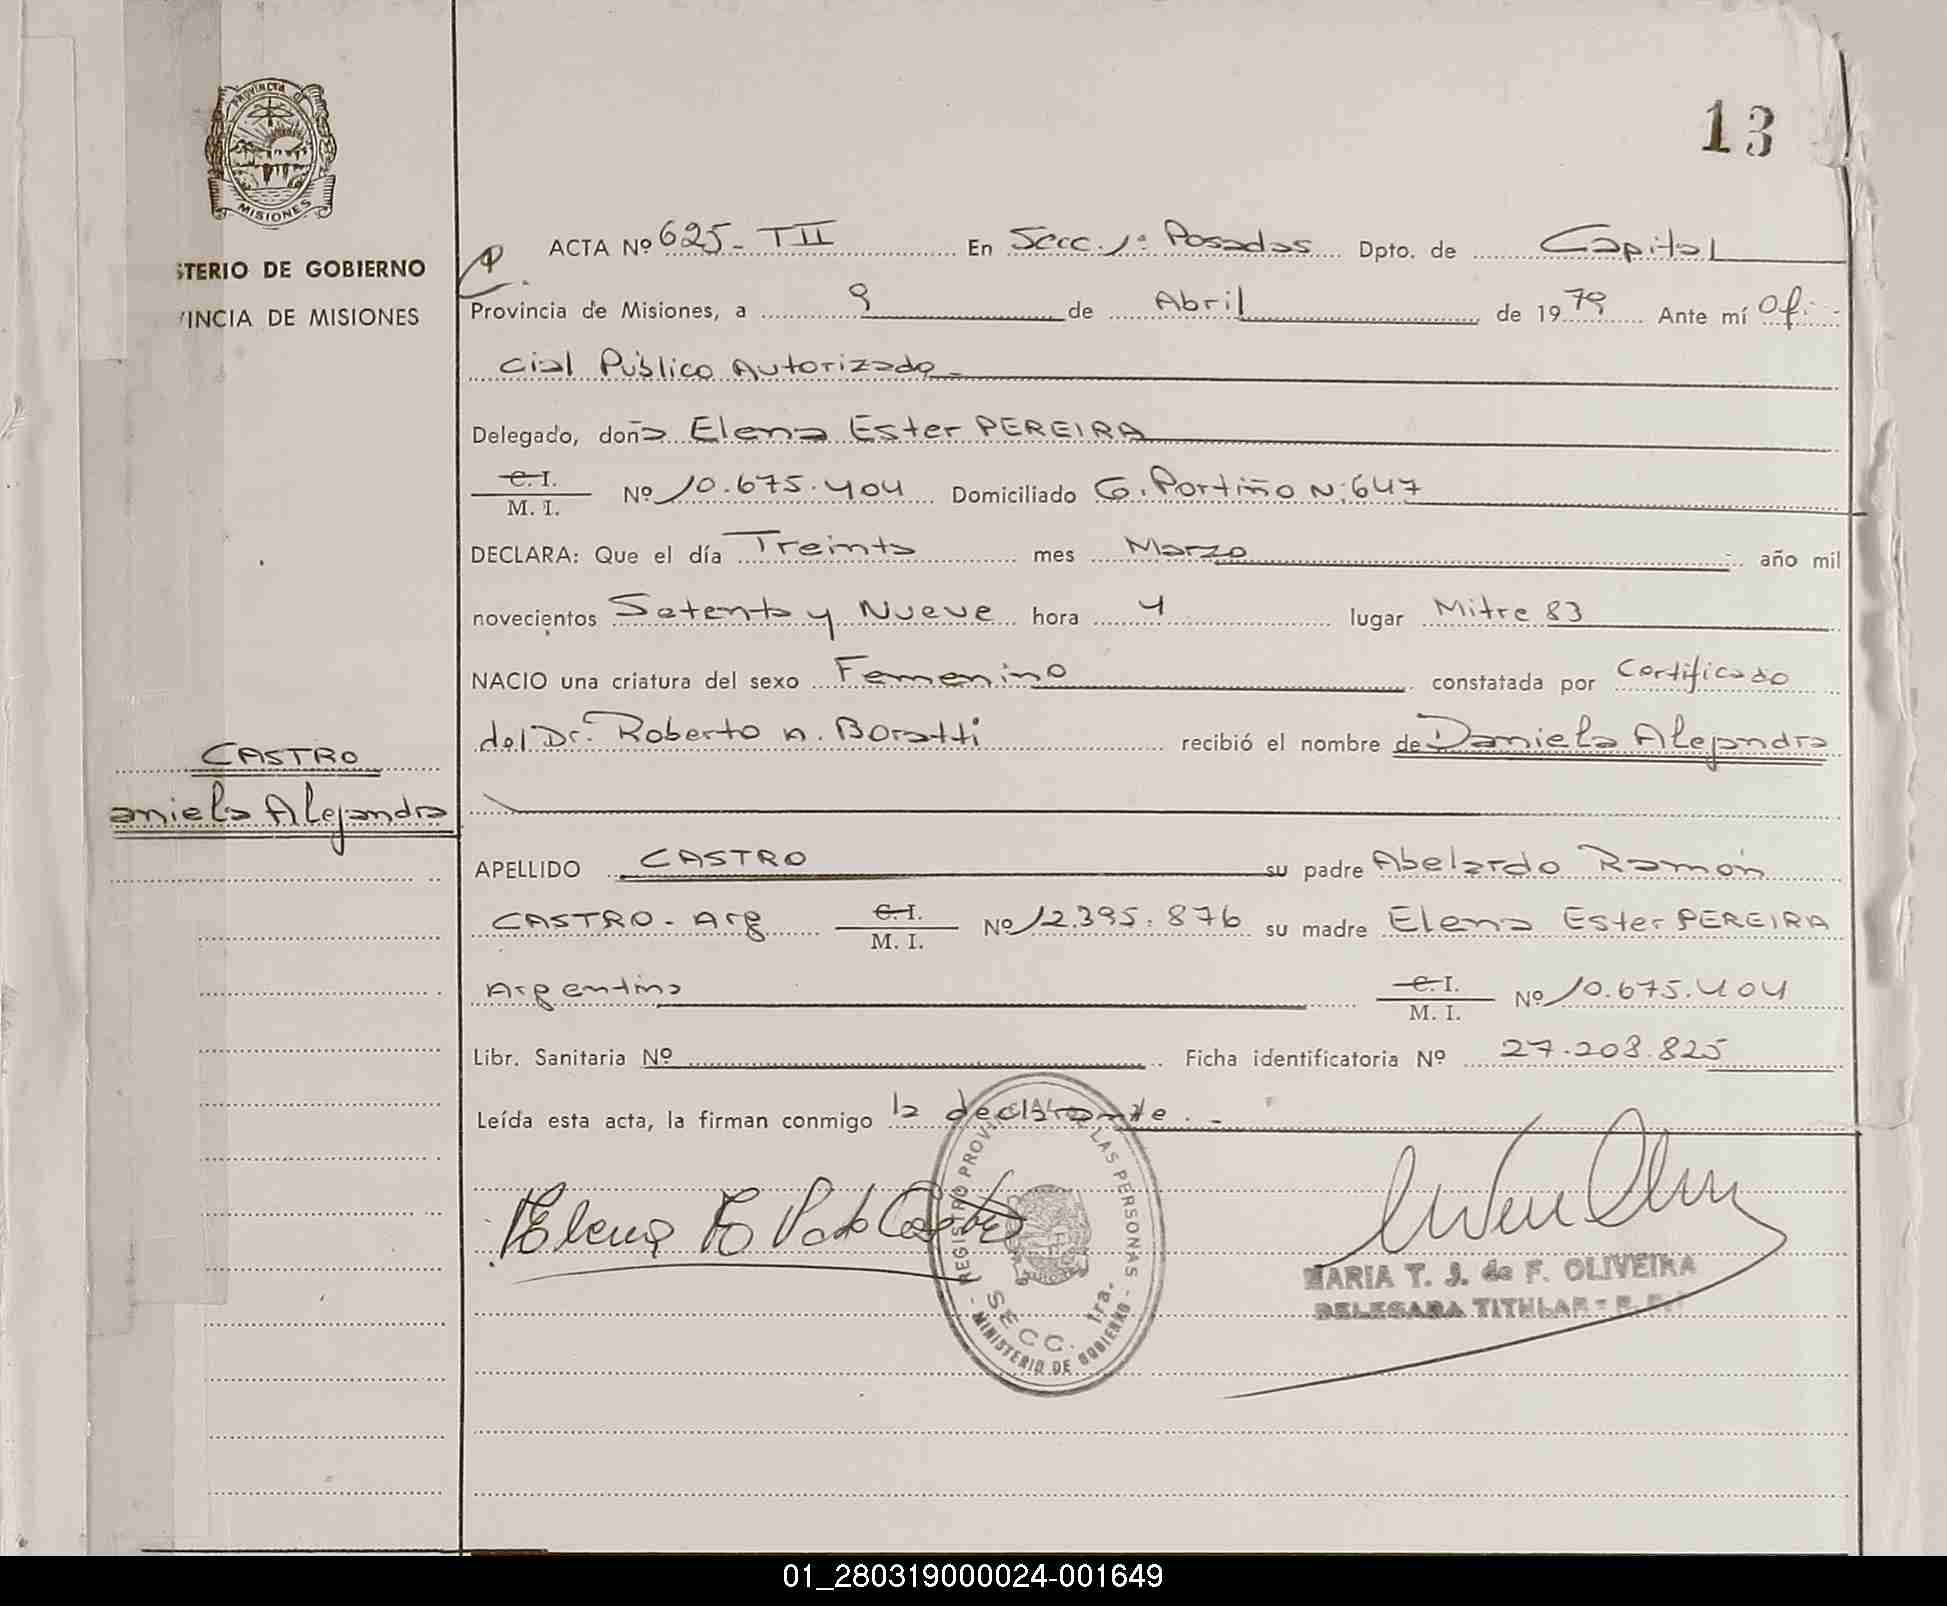 13
PROVINCIA DE
MISIONES
STERIO DE GOBIERNO
VINCIA DE MISIONES
ACTA Nº 625- TII En Secc. 1ª Posadas Dpto. de Capital
Provincia de Misiones, a 9 de Abril de 1979 Ante mí Ofi-
cial Público Autorizado-
Delegado, doña Elena Ester PEREIRA
C. I.
M. I. Nº 10.675.404 Domiciliado G. Portiño Nº 647
DECLARA: Que el día Treinta mes Marzo año mil
novecientos Setenta y Nueve hora 4 lugar Mitre 83
NACIO una criatura del sexo Femenino constatada por Certificado
del Dr. Roberto A. Boratti recibió el nombre de Daniela Alejandra
CASTRO
aniela Alejandra
APELLIDO CASTRO su padre Abelardo Ramón
CASTRO - Arg C. I. M. I. Nº 12.395.876 su madre Elena Ester PEREIRA
Argentina C. I. M. I. Nº 10.675.404
Libr. Sanitaria Nº Ficha identificatoria Nº 27.208.825
Leída esta acta, la firman conmigo la declarante.-
Elena E P de Castro
REGISTRO PROVINCIAL DE LAS PERSONAS
SECC. 1ra.
- MINISTERIO DE GOBIERNO -
MARIA T. J. de F. OLIVEIRA
DELEGADA TITULAR
01_280319000024-001649